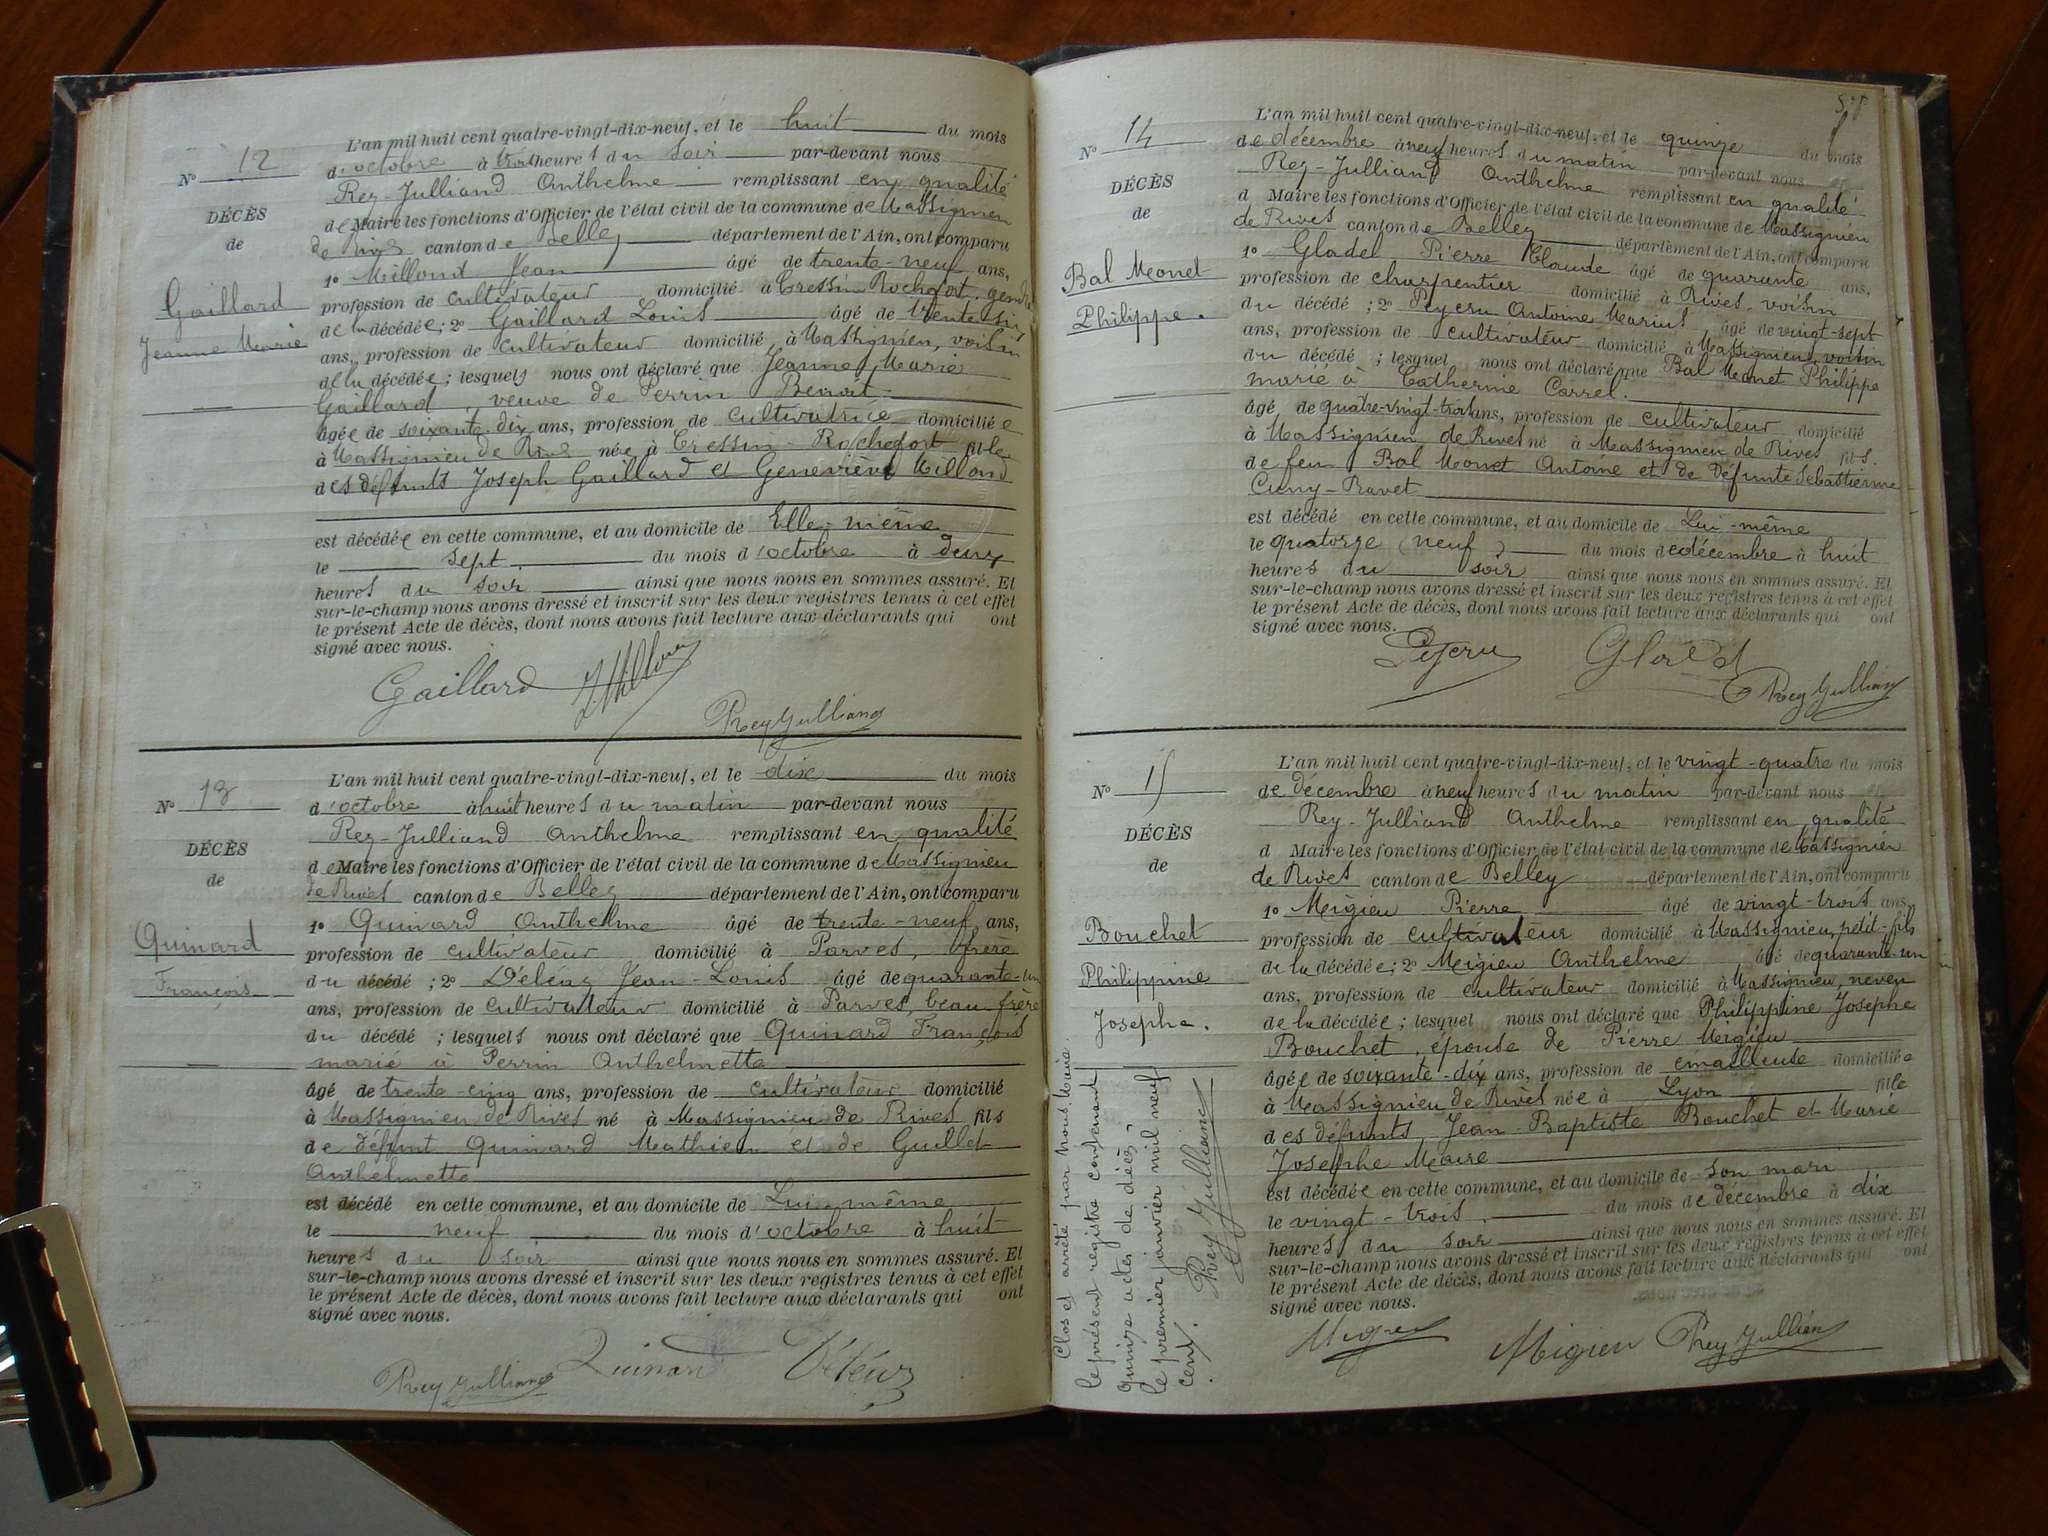 N° 12
DÉCÈS
de
Gaillard
Jeanne Marie
L'an mil huit cent quatre-vingt-dix-neuf, et le huit du mois
d'octobre à trois heures du soir par-devant nous
Rey-Julliand Anthelme remplissant en qualité
de Maire les fonctions d'Officier de l'état civil de la commune de Massignieu
de Rives canton de Belley département de l'Ain, ont comparu
1° Millond Jean âgé de trente-neuf ans,
profession de cultivateur domicilié à Cressin Rochefort, gendre
de la décédée; 2° Gaillard Louis âgé de trente six
ans, profession de cultivateur domicilié à Massignieu, voisin
de la décédée; lesquels nous ont déclaré que Jeanne Marie
Gaillard, veuve de Perrin Benoit
âgée de soixante-dix ans, profession de cultivatrice domiciliée
à Massignieu de Rives née à Cressin-Rochefort fille
des défunts Joseph Gaillard et Geneviève Millond
est décédée en cette commune, et au domicile de Elle-même
le sept du mois d'octobre à deux
heures du soir ainsi que nous nous en sommes assuré. Et
sur-le-champ nous avons dressé et inscrit sur les deux registres tenus à cet effet
le présent Acte de décès, dont nous avons fait lecture aux déclarants qui ont
signé avec nous.
Gaillard J. Millon
Rey Julliand
N° 13
DÉCÈS
de
Quinard
François
L'an mil huit cent quatre-vingt-dix-neuf, et le dix du mois
d'octobre à huit heures du matin par-devant nous
Rey-Julliand Anthelme remplissant en qualité
de Maire les fonctions d'Officier de l'état civil de la commune de Massignieu
de Rives canton de Belley département de l'Ain, ont comparu
1° Quinard Anthelme âgé de trente-neuf ans,
profession de cultivateur domicilié à Parves, frère
du décédé; 2° Déléaz Jean-Louis âgé de quarante-un
ans, profession de cultivateur domicilié à Parves, beau frère
du décédé; lesquels nous ont déclaré que Quinard François
marié à Perrin Anthelmette
âgé de trente-cinq ans, profession de cultivateur domicilié
à Massignieu de Rives né à Massignieu de Rives fils
de défunt Quinard Mathieu et de Guillet
Anthelmette
est décédé en cette commune, et au domicile de Lui-même
le neuf du mois d'octobre à huit
heures du soir ainsi que nous nous en sommes assuré. Et
sur-le-champ nous avons dressé et inscrit sur les deux registres tenus à cet effet
le présent Acte de décès, dont nous avons fait lecture aux déclarants qui ont
signé avec nous.
Rey Julliand Quinard
N° 14
DÉCÈS
de
Bal Monet
Philippe.
L'an mil huit cent quatre-vingt-dix-neuf, et le quinze du mois
de décembre à neuf heures du matin par-devant nous
Rey-Julliand Anthelme remplissant en qualité
d Maire les fonctions d'Officier de l'état civil de la commune de Massignieu
de Rives canton de Belley département de l'Ain, ont comparu
1° Gladel Pierre Claude âgé de quarante ans,
profession de charpentier domicilié à Rives, voisin
du décédé; 2° Peyeru Antoine Marius, âgé de vingt-sept
ans, profession de cultivateur domicilié à Massignieu, voisin
du décédé; lesquel nous ont déclaré que Bal Monet Philippe
marié à Catherine Carrel.
âgé de quatre-vingt-trois ans, profession de cultivateur domicilié
à Massignieu de Rives né à Massignieu de Rives fils.
de feu Bal Monet Antoine et de Défunte Sébastienne
Cuny-Ravet
est décédé en cette commune, et au domicile de Lui-même
le quatorze (neuf) du mois de décembre à huit
heures du soir ainsi que nous nous en sommes assuré. Et
sur-le-champ nous avons dressé et inscrit sur les deux registres tenus à cet effet
le présent Acte de décès, dont nous avons fait lecture aux déclarants qui ont
signé avec nous.
Peyeru Gladel
Rey Julliand
N° 15
DÉCÈS
de
Bouchet
Philippine
Josephe.
L'an mil huit cent quatre-vingt-dix-neuf, et le vingt-quatre du mois
de décembre à neuf heures du matin par-devant nous
Rey-Julliand Anthelme remplissant en qualité
d Maire les fonctions d'Officier de l'état civil de la commune de Massignieu
de Rives canton de Belley département de l'Ain, ont comparu
1° Migieu Pierre âgé de vingt-trois ans,
profession de cultivateur domicilié à Massignieu, petit-fils
de la décédée; 2° Migieu Anthelme, âgé de quarante-un
ans, profession de cultivateur domicilié à Massignieu, neveu
de la décédée; lesquel nous ont déclaré que Philippine Josephe
Bouchet, épouse de Pierre Migieu
âgée de soixante-dix ans, profession de émailleuse domiciliée
à Massignieu de Rives née à Lyon fille
des défunts Jean-Baptiste Bouchet et Marie
Josephe Maire
est décédée en cette commune, et au domicile de son mari
le vingt-trois. du mois de décembre à dix
heures du soir ainsi que nous nous en sommes assuré. Et
sur-le-champ nous avons dressé et inscrit sur les deux registres tenus à cet effet
le présent Acte de décès, dont nous avons fait lecture aux déclarants qui ont
signé avec nous.
Migieu Migieu Rey Julliand
Clos et arrêté par nous Maire.
le présent registre contenant
quinze actes de décès
le premier janvier mil neuf
cent.
Rey Julliand